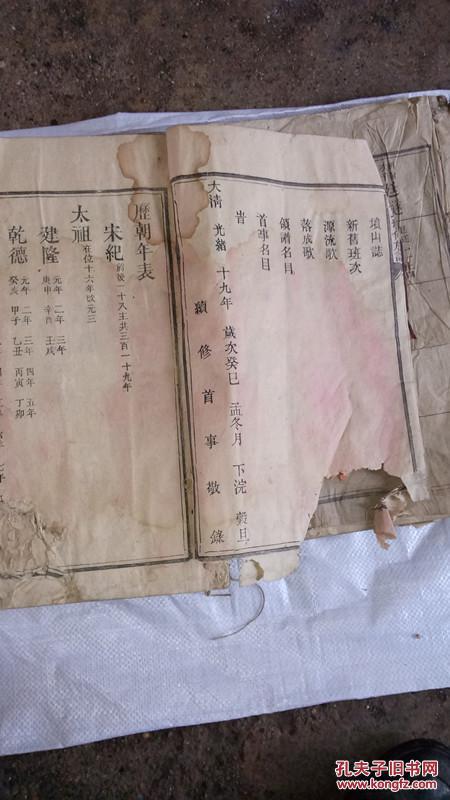 墳山誌
新舊班次
源流歌
落成歌
領譜名目
首事名目
旹
大清光緒十九年歲次癸巳孟冬月下浣穀旦
續修首事敬錄
歷朝年表
宋紀 前後一十八主共三百一十九年
太祖 在位十六年改元三
建隆 元年 二年 三年
庚申 辛酉 壬戌
乾德 元年 二年 三年 四年 五年
癸亥 甲子 乙丑 丙寅 丁卯
孔夫子旧书网
KONGFZ.COM